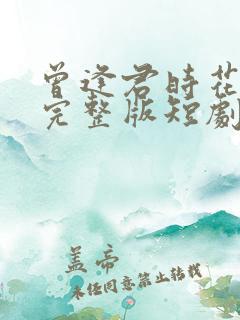 曾逢君時花
完整版短劇
盖帝
未经同意禁止转载